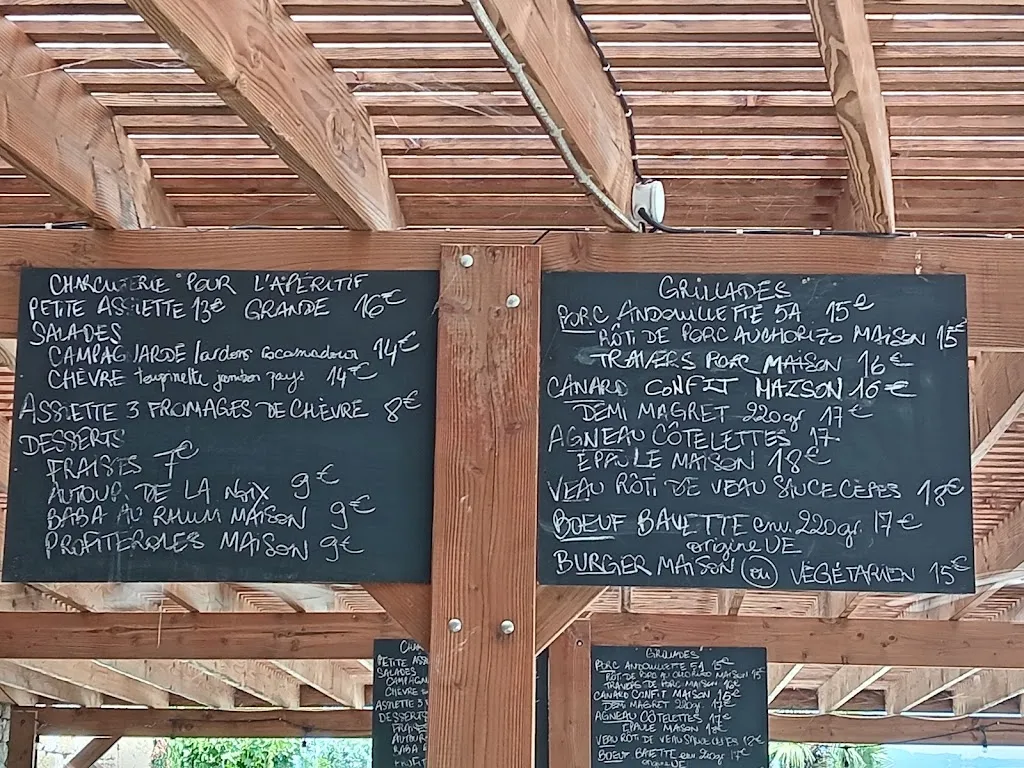 CHARCUTERIE "POUR L'APÉRITIF
PETITE ASSIETTE 13€ GRANDE 16€
SALADES
CAMPAGNARDE lardons rocamadour 14€
CHÈVRE toupinelle jambon pays 14€
ASSIETTE 3 FROMAGES DE CHÈVRE 8€
DESSERTS
FRAISES 7€
AUTOUR DE LA NOIX 9€
BABA AU RHUM MAISON 9€
PROFITEROLES MAISON 9€
GRILLADES
PORC ANDOUILLETTE 5A 15€
RÔTI DE PORC AU CHORIZO MAISON 15€
TRAVERS PORC MAISON 16€
CANARD CONFIT MAISON 16€
DEMI MAGRET 220gr 17€
AGNEAU CÔTELETTES 17
ÉPAULE MAISON 18€
VEAU RÔTI DE VEAU SAUCE CÈPES 18€
BOEUF BAVETTE env. 220gr. 17€
origine UE
BURGER MAISON ou VÉGÉTARIEN 15€
CHA
PETITE ASS
SALADES
CAMPAGN
CHÈVRE
ASSIETTE 3
DESSERTS
FRAISES
AUTOUR
BABA
PROFIT
GRILLADES
PORC ANDOUILLETTE 5A 15€
RÔTI DE PORC AU CHORIZO MAISON 15€
TRAVERS DE PORC MAISON 16€
CANARD CONFIT MAISON 16€
DEMI MAGRET 220gr. 17€
AGNEAU CÔTELETTES 17€
ÉPAULE MAISON 18€
VEAU RÔTI DE VEAU SAUCE CÈPES 18€
BOEUF BAVETTE env. 220gr 17€
origine UE